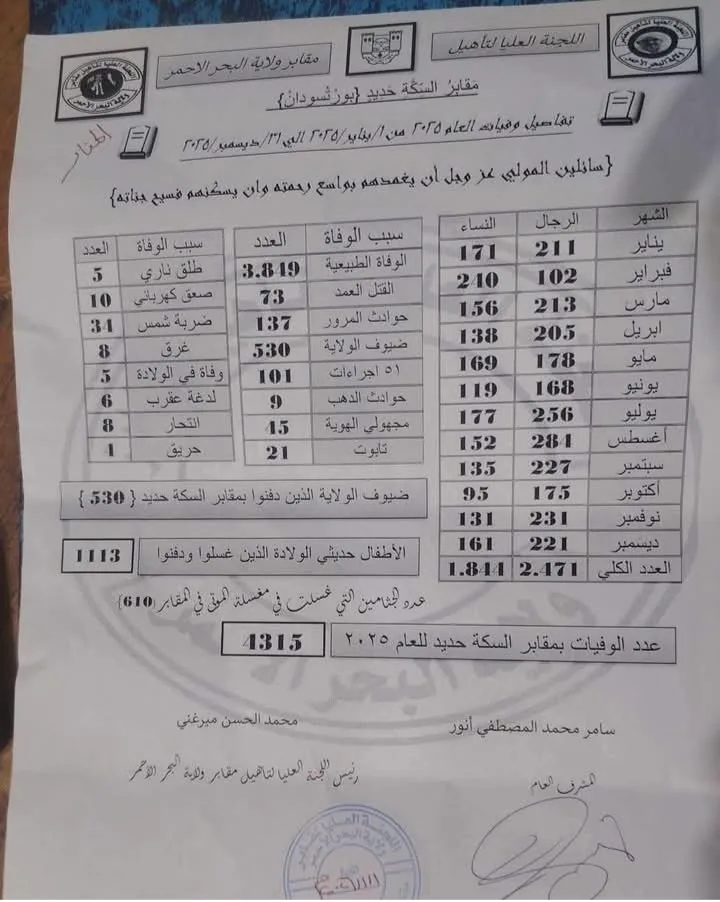 اللجنة العليا لتأهيل
مقابر ولاية البحر الاحمر
مقابر السكة حديد {بورتسودان}
تفاصيل وفيات العام ٢٠٢٥ من ١/يناير/٢٠٢٥ الي ٣١/ديسمبر/٢٠٢٥
{سائلين المولي عز وجل أن يغمدهم بواسع رحمته وان يسكنهم فسيح جناته}
الشهر الرجال النساء
يناير 211 171
فبراير 102 240
مارس 213 156
ابريل 205 138
مايو 178 169
يونيو 168 119
يوليو 256 177
أغسطس 284 152
سبتمبر 227 135
أكتوبر 175 95
نوفمبر 231 131
ديسمبر 221 161
العدد الكلي 2.471 1.844
سبب الوفاة العدد
الوفاة الطبيعية 3.849
القتل العمد 73
حوادث المرور 137
ضيوف الولاية 530
٥١ اجراءات 101
حوادث الدهب 9
مجهولي الهوية 45
تابوت 21
سبب الوفاة العدد
طلق ناري 5
صعق كهربائي 10
ضربة شمس 34
غرق 8
وفاة في الولادة 5
لدغة عقرب 6
انتحار 8
حريق 4
ضيوف الولاية الذين دفنوا بمقابر السكة حديد { 530 }
الأطفال حديثي الولادة الذين غسلوا ودفنوا 1113
عدد الجثامين التي غسلت في مغسلة الموتى في المقابر (610)
عدد الوفيات بمقابر السكة حديد للعام ٢٠٢٥ 4315
سامر محمد المصطفي أنور
محمد الحسن ميرغني
المشرف العام
رئيس اللجنة العليا لتاهيل مقابر ولاية البحر الاحمر